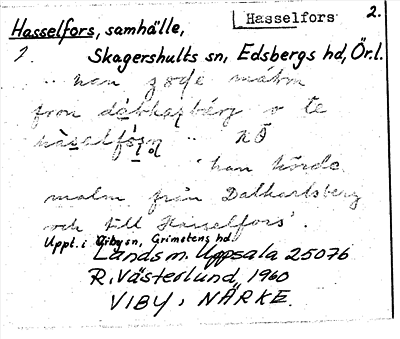 Hasselfors 2.
Hasselfors, samhälle,
Skagershults sn, Edsbergs hd, Ör.l.
malm
o te
'han körde
malm från Dalkarlsberg
och till Hasselfors'.
Uppt. i Viby sn, Grimstens hd.
Landsm. Uppsala 25076
R. Västerlund, 1960
VIBY, NÄRKE.